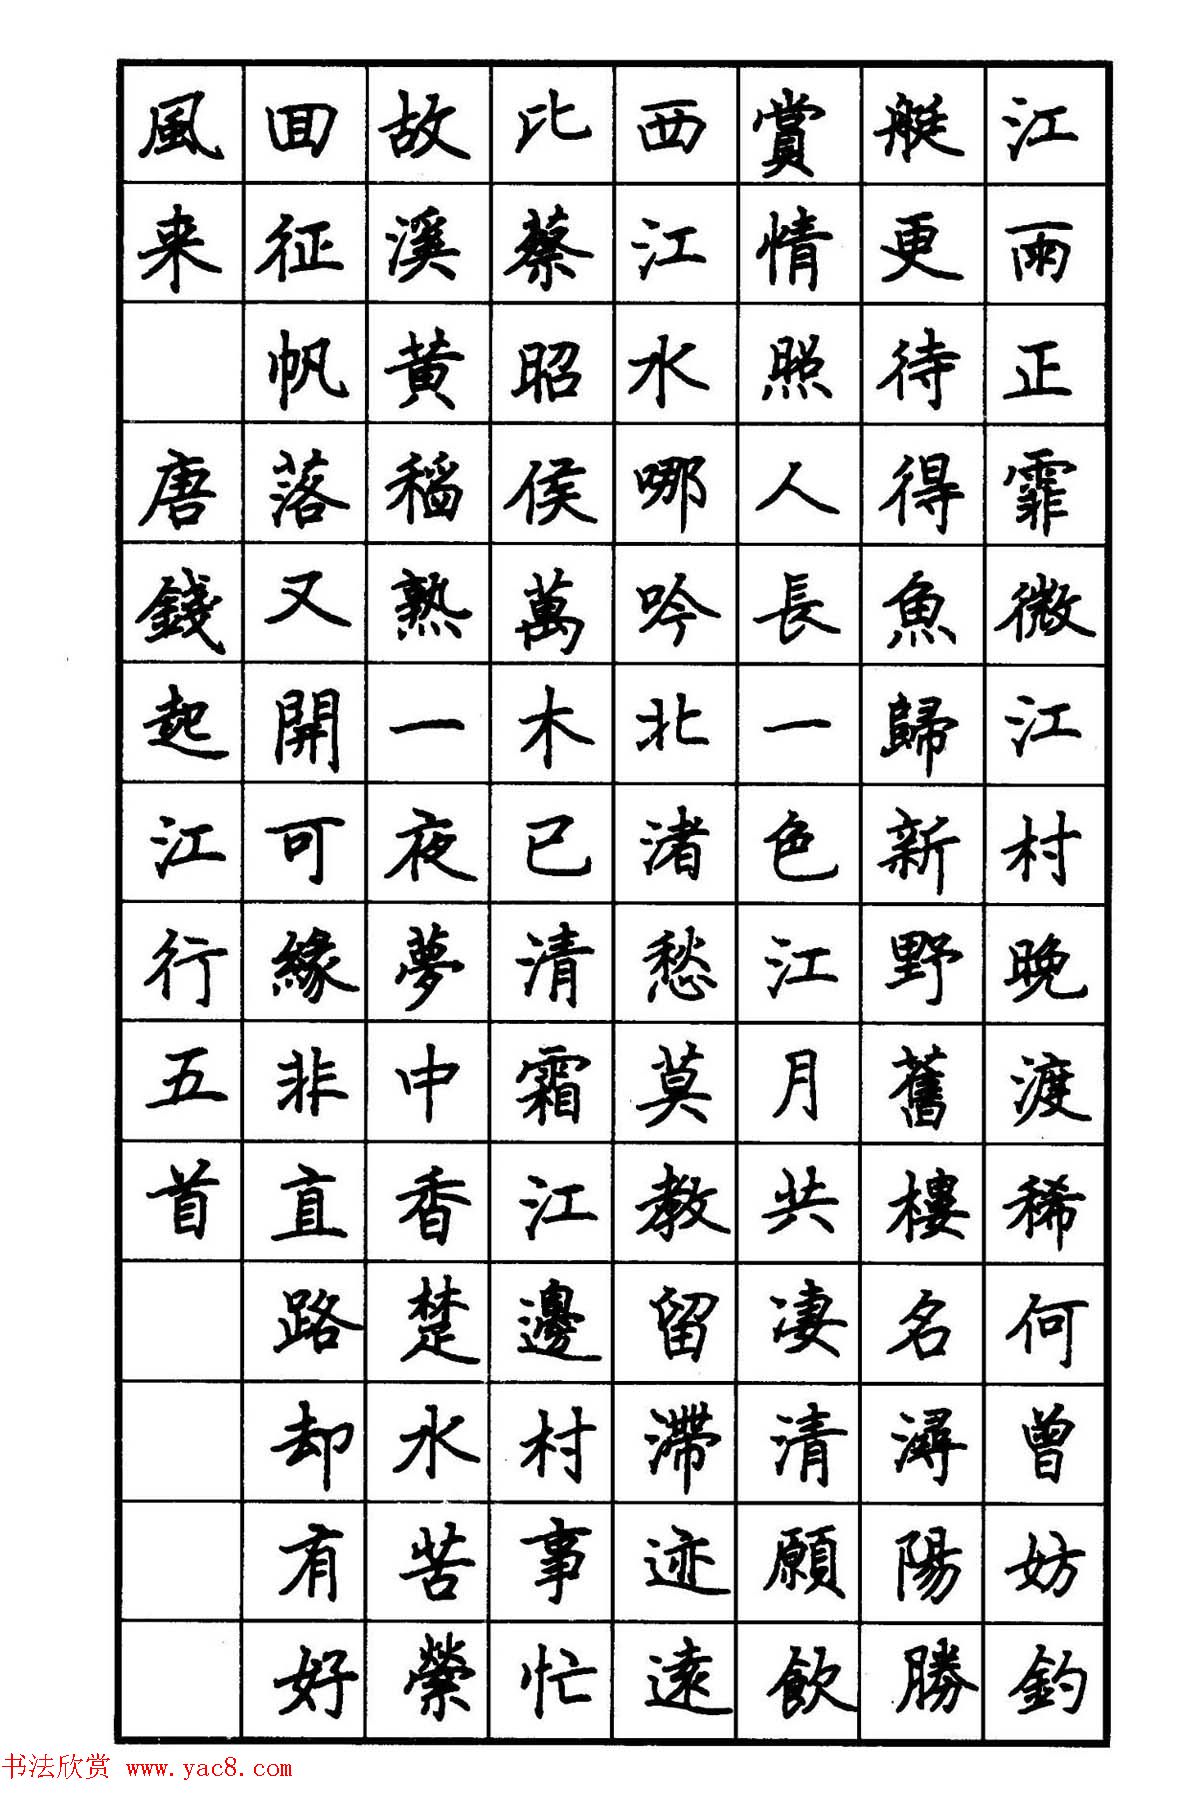 江雨正霏微江村晚渡稀何曾妨釣
艇更待得魚歸新野舊樓名潯陽勝
賞情照人長一色江月共凄清願飲
西江水哪吟北渚愁莫教留滯迹遠
比蔡昭侯萬木已清霜江邊村事忙
故溪黃稻熟一夜夢中香楚水苦縈
回征帆落又開可緣非直路却有好
風来 唐錢起江行五首
书法欣赏 www.yac8.com